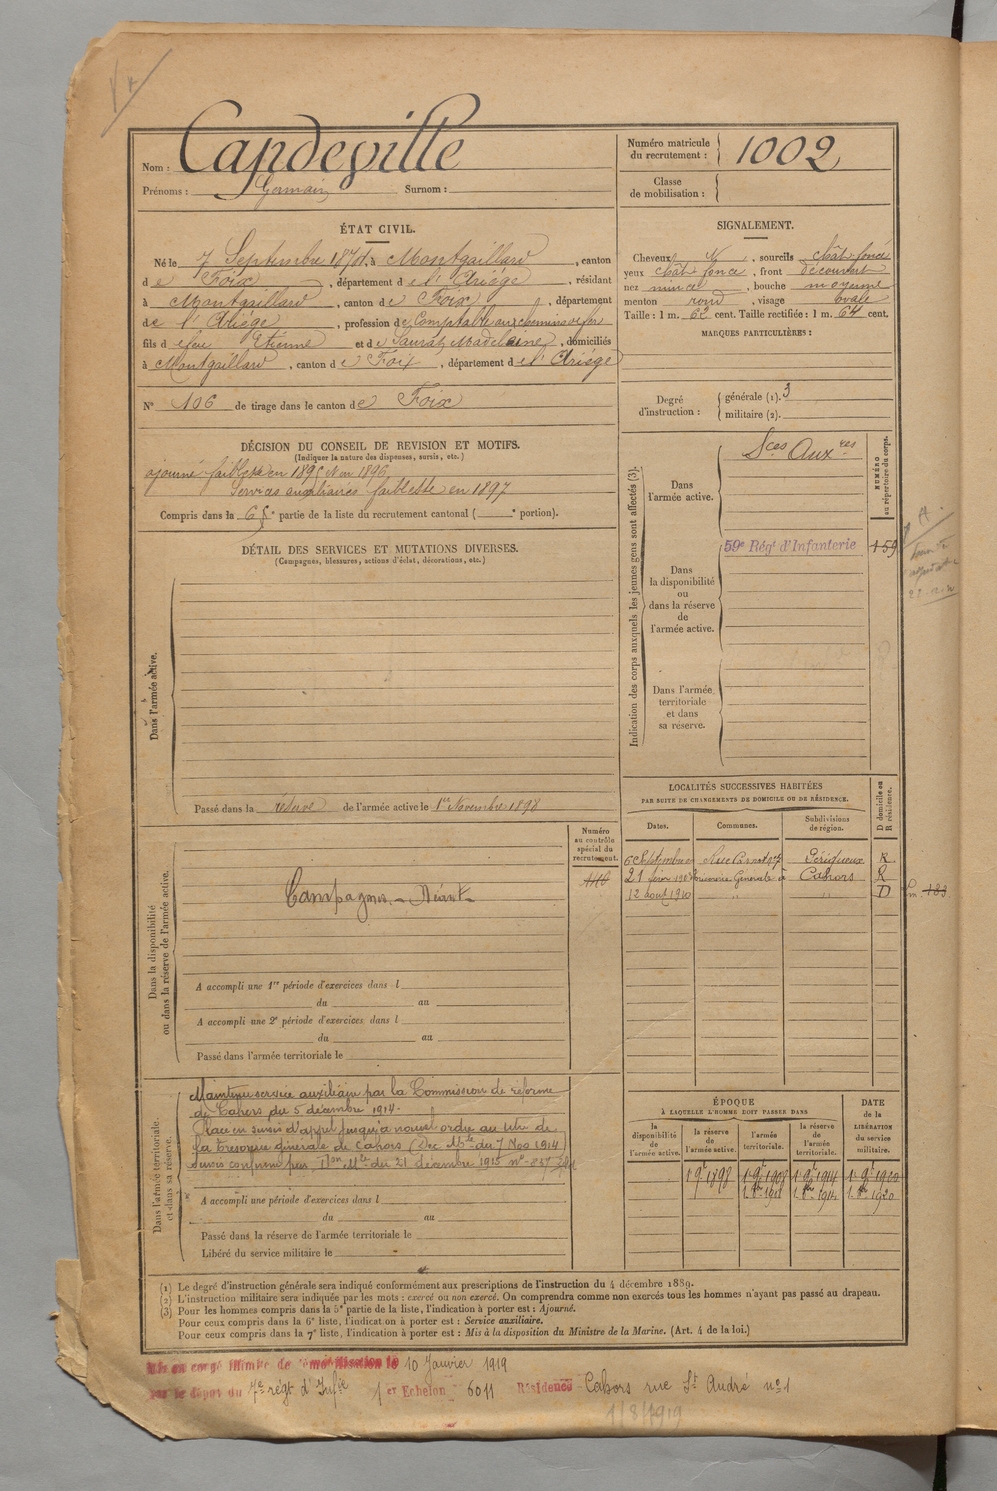 Nom : Capdeville
Prénoms : Germain Surnom :
Numéro matricule du recrutement : 1002
Classe de mobilisation :
ÉTAT CIVIL.
Né le 7 Septembre 1874, à Montgaillard, canton
de Foix, département de l'Ariège, résidant
à Montgaillard, canton de Foix, département
de l'Ariège, profession de Comptable aux chemins de fer
fils de feu Etienne et de Saurat Madelaine, domiciliés
à Montgaillard, canton de Foix, département de l'Ariège
N° 106 de tirage dans le canton de Foix
SIGNALEMENT.
Cheveux, sourcils chât foncé
yeux chât foncé, front découvert
nez mince, bouche moyenne
menton rond, visage ovale
Taille : 1 m. 62 cent. Taille rectifiée : 1 m. 64 cent.
MARQUES PARTICULIÈRES :
Degré d'instruction : générale (1). 3
militaire (2).
DÉCISION DU CONSEIL DE REVISION ET MOTIFS.
(Indiquer la nature des dispenses, sursis, etc.)
ajourné faiblesse en 1895 et en 1896
Services auxiliaires faiblesse en 1897
Compris dans la 6e partie de la liste du recrutement cantonal ( e portion).
DÉTAIL DES SERVICES ET MUTATIONS DIVERSES.
(Campagnes, blessures, actions d'éclat, décorations, etc.)
Dans l'armée active.
Passé dans la réserve de l'armée active le 1er Novembre 1898
Indication des corps auxquels les jeunes gens sont affectés (3).
NUMÉRO au répertoire du corps.
Dans l'armée active.
Sces Auxres
59e Régt d'Infanterie 159
Dans la disponibilité ou dans la réserve de l'armée active.
Dans l'armée territoriale et dans sa réserve.
LOCALITÉS SUCCESSIVES HABITÉES
PAR SUITE DE CHANGEMENTS DE DOMICILE OU DE RÉSIDENCE.
Dates. Communes. Subdivisions de région. D domicile ou R résidence.
Périgueux R
Cahors R
12 août 1910 " " D
Dans la disponibilité ou dans la réserve de l'armée active.
Numéro au contrôle spécial du recrutement.
Campagnes. Néant
A accompli une 1re période d'exercices dans l
du au
A accompli une 2e période d'exercices dans l
du au
Passé dans l'armée territoriale le
Dans l'armée territoriale et dans sa réserve.
Maintenu service auxiliaire par la Commission de réforme
de Cahors du 5 décembre 1914.
Placé en sursis d'appel jusqu'à nouvel ordre au titre de
la trésorerie générale de Cahors (Dec. Mlle du 7 Nov 1914)
A accompli une période d'exercices dans l
du au
Passé dans la réserve de l'armée territoriale le
Libéré du service militaire le
ÉPOQUE
À LAQUELLE L'HOMME DOIT PASSER DANS
la disponibilité de l'armée active. la réserve de l'armée active. l'armée territoriale. la réserve de l'armée territoriale.
DATE de la LIBÉRATION du service militaire.
(1) Le degré d'instruction générale sera indiqué conformément aux prescriptions de l'instruction du 4 décembre 1889.
(2) L'instruction militaire sera indiquée par les mots : exercé ou non exercé. On comprendra comme non exercés tous les hommes n'ayant pas passé au drapeau.
(3) Pour les hommes compris dans la 5e partie de la liste, l'indication à porter est : Ajourné.
Pour ceux compris dans la 6e liste, l'indication à porter est : Service auxiliaire.
Pour ceux compris dans la 7e liste, l'indication à porter est : Mis à la disposition du Ministre de la Marine. (Art. 4 de la loi.)
Mis en congé illimité de démobilisation le 10 Janvier 1919
par le dépôt du 7e régt d'Infie 1er Echelon 6011 Résidence Cahors rue St André n° 1
1/8/1919